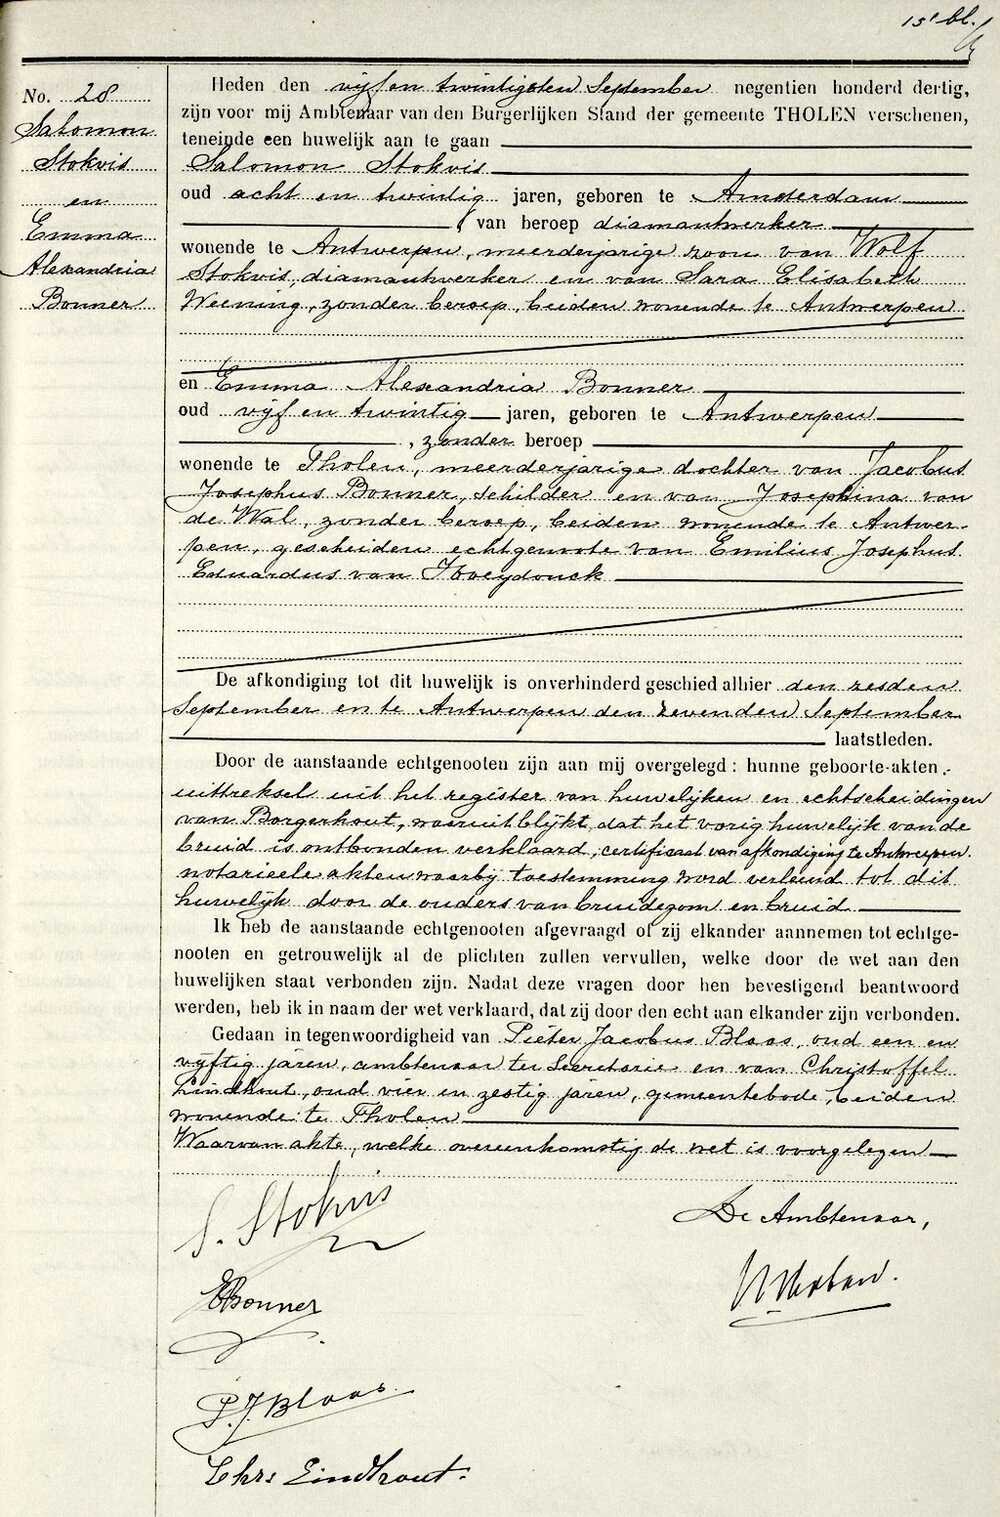 15e bl.
No. 28
Salomon
Stokvis
en
Emma
Alexandria
Bonner
Heden den vijf en twintigsten September negentien honderd dertig,
zijn voor mij Ambtenaar van den Burgerlijken Stand der gemeente THOLEN verschenen,
teneinde een huwelijk aan te gaan
Salomon Stokvis
oud acht en twintig jaren, geboren te Amsterdam
, van beroep diamantwerker
wonende te Antwerpen, meerderjarige zoon van Wolf
Stokvis, diamantwerker en van Sara Elisabeth
Weening, zonder beroep, beiden wonende te Antwerpen
en Emma Alexandria Bonner
oud vijf en twintig jaren, geboren te Antwerpen
, zonder beroep
wonende te Tholen, meerderjarige dochter van Jacobus
Josephus Bonner, schilder en van Josephina van
de Wal, zonder beroep, beiden wonende te Antwer-
pen, gescheiden echtgenoote van Emilius Josephus
Eduardus van Hoeydonck
De afkondiging tot dit huwelijk is onverhinderd geschied alhier den zesden
September en te Antwerpen den zevenden September
laatstleden.
Door de aanstaande echtgenooten zijn aan mij overgelegd: hunne geboorte-akten,
uittreksel uit het register van huwelijken en echtscheidingen
van Borgerhout, waaruit blijkt, dat het vorig huwelijk van de
bruid is ontbonden verklaard, certificaat van afkondiging te Antwerpen.
notarieele akten waarbij toestemming word verleend tot dit
huwelijk door de ouders van bruidegom en bruid
Ik heb de aanstaande echtgenooten afgevraagd of zij elkander aannemen tot echtge-
nooten en getrouwelijk al de plichten zullen vervullen, welke door de wet aan den
huwelijken staat verbonden zijn. Nadat deze vragen door hen bevestigend beantwoord
werden, heb ik in naam der wet verklaard, dat zij door den echt aan elkander zijn verbonden.
Gedaan in tegenwoordigheid van Pieter Jacobus Blaas, oud een en
vijftig jaren, ambtenaar ter Secretarie en van Christoffel
Eindhout, oud vier en zestig jaren, gemeentebode, beiden
wonende te Tholen
Waarvan akte, welke overeenkomstig de wet is voorgelezen
S. Stokvis
De Ambtenaar,
EBonner
P. J. Blaas
Chrs Eindhout.